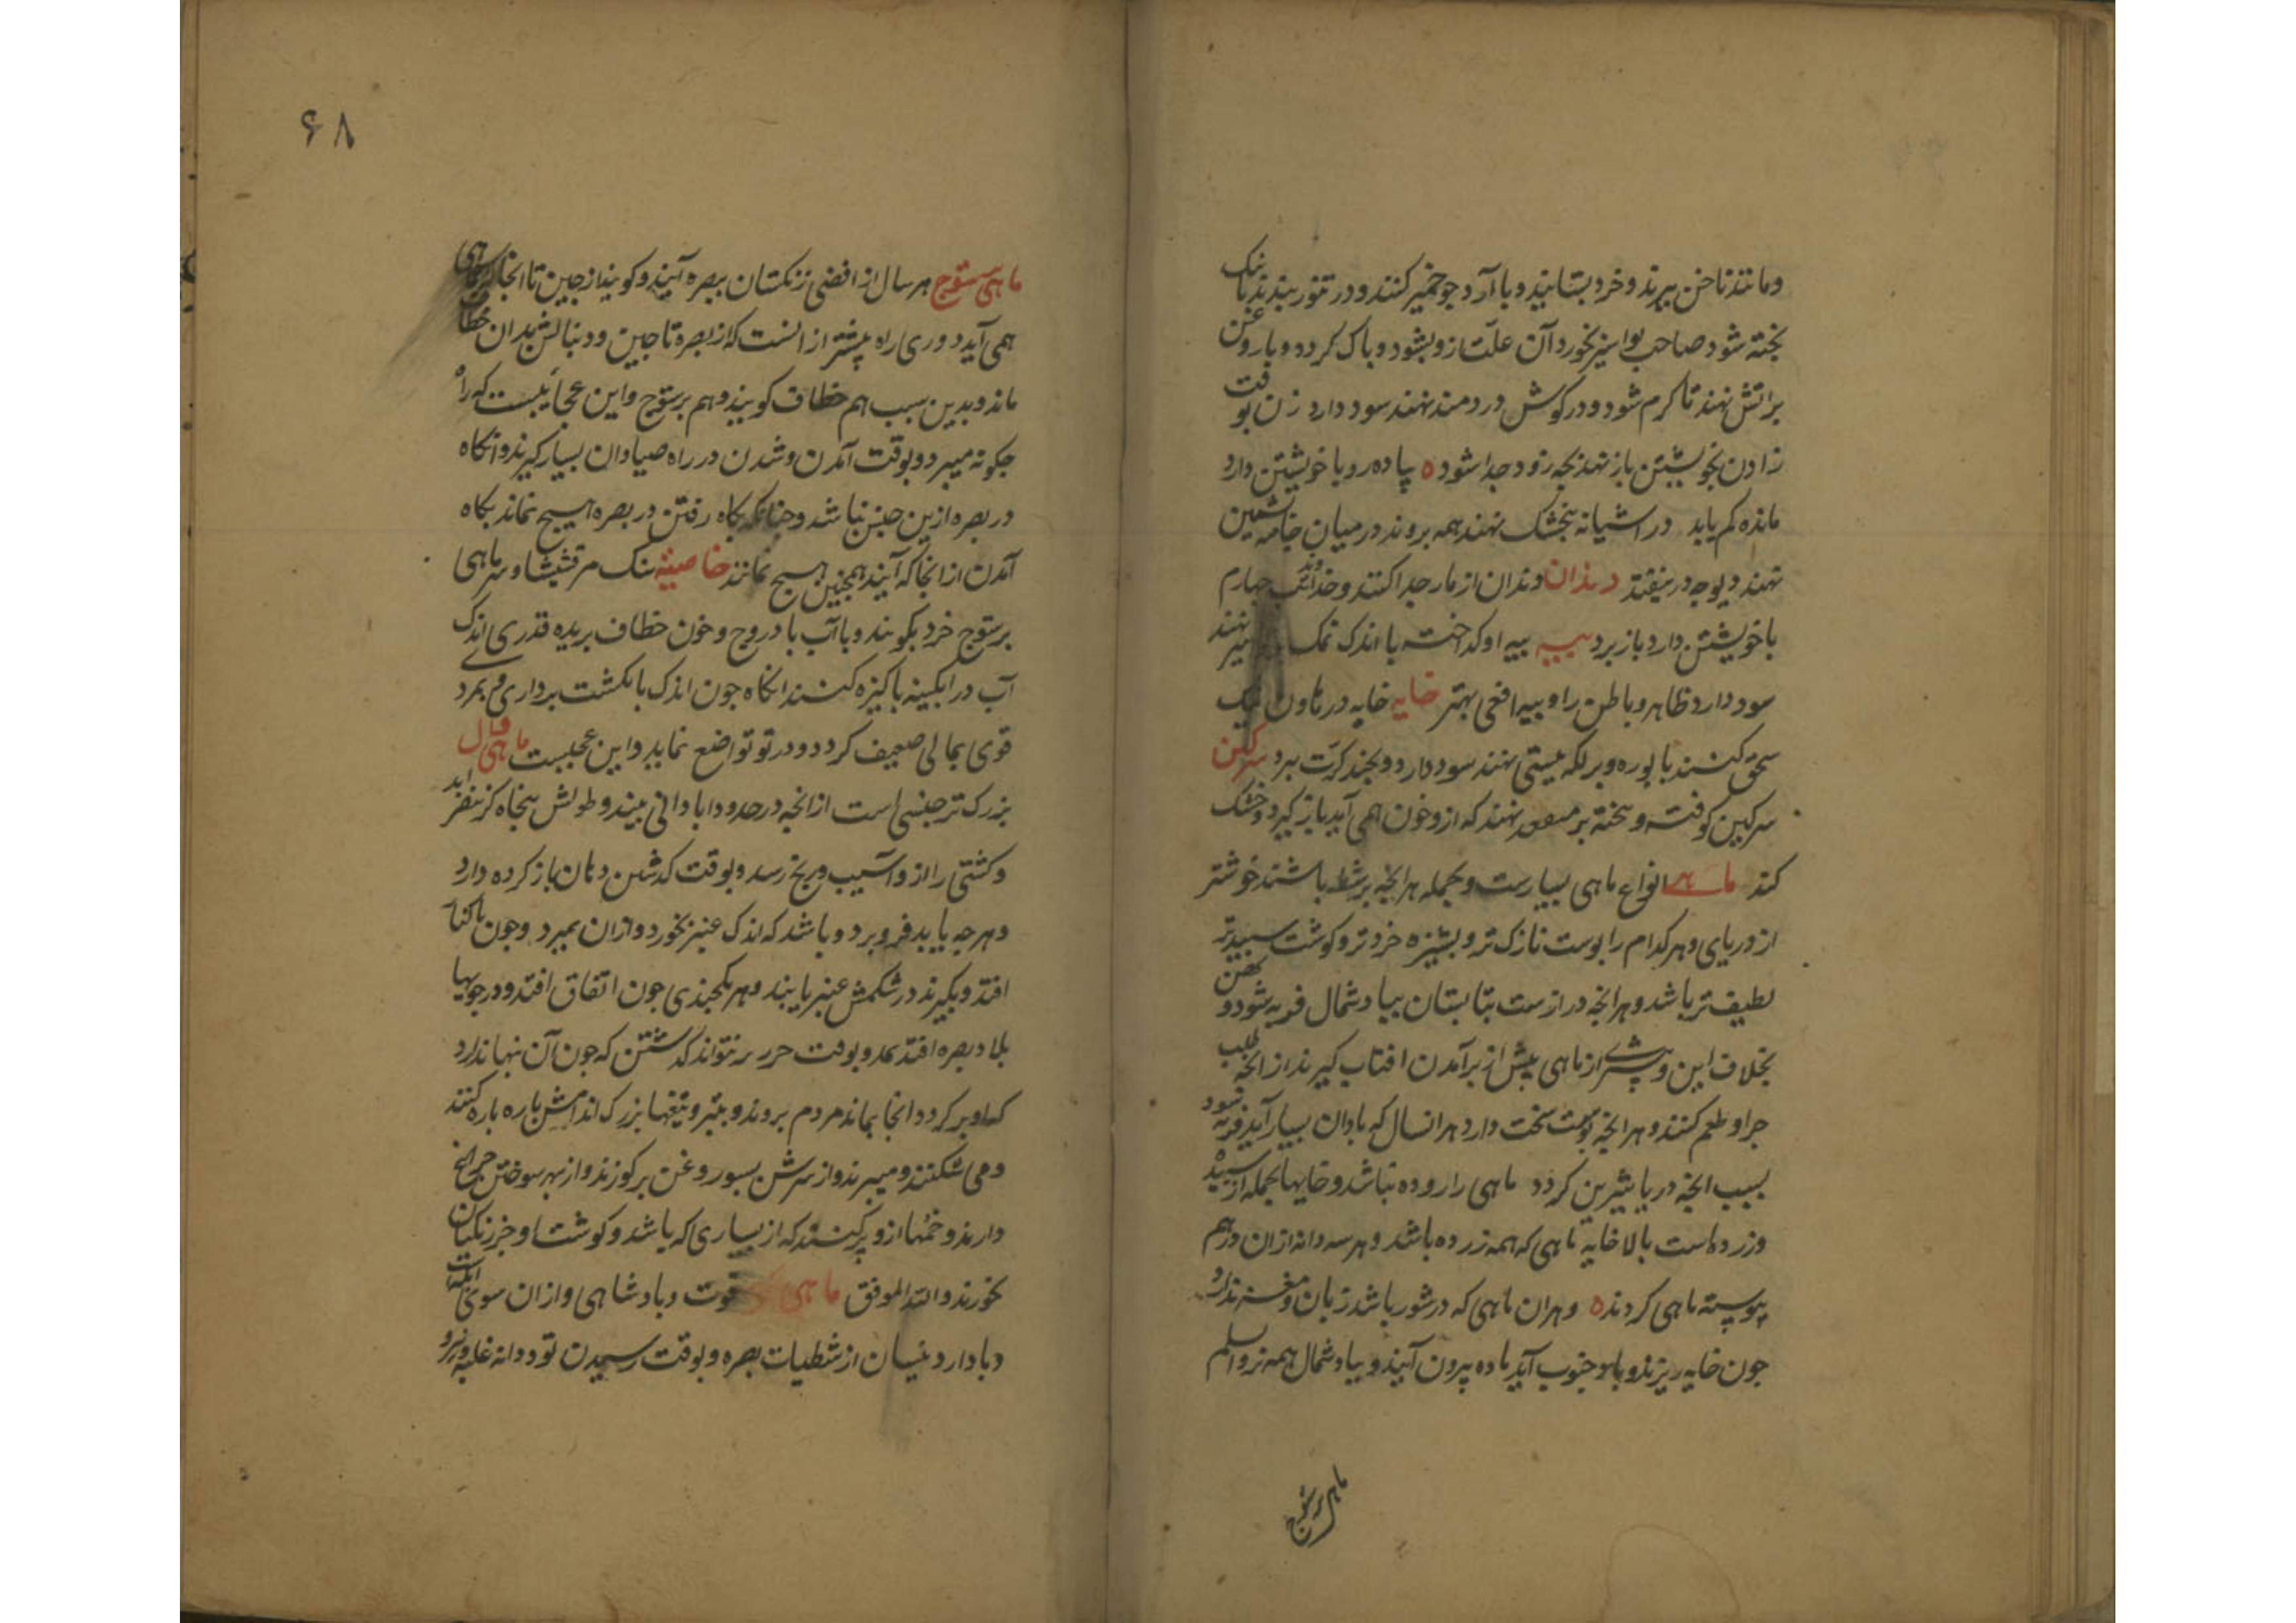 ومانند ناخن ببرند و خرد بستانید و با آرد جو خمیر کنند و در تنور بندند تا نیک
بخته شود صاحب بواسیر بخورد آن علت ازو بشود و باک کردد و با روغن
بر اتش نهند تا کرم شود و در کوش دردمند نهند سود دارد زن بوقت
زادن بخویشتن باز نهد بجه زود جدا شود ه پیاده رو با خویشتن دارد
مانده کم یابد در اشیانه بنجشک نهند همه بروند در میان جامه بشمین
نهند دیوجه در نیفتد دندان دندان از مار جدا کنند و خداوند تب جهارم
با خویشتن دارد باز برد بیه بیه او کداخته با اندک نمک نهند
سود دارد ظاهر و باطن را و بیه افعی بهتر خایه خایه در هاون نیک
سحق کنند با بوره و بر لکه نهند سود دارد و بجند کرت ببرد سرکین
سرکین کوفته و بیخته بر مقعد نهند که ازو خون همی آید باز کیرد و خشک
کند ماهی انواع ماهی بسیارست و بجمله هرانجه بر شط باشند خوشتر
از دریای و هر کدام را بوست نازک تر و بشیزه خردتر و کوشت سبیدتر
لطیف تر باشد و هرانجه درازست بتابستان بباد شمال فربه شود و بهن
بخلاف این و بیشتر از ماهی بیش از برآمدن افتاب کیرند از انجه طلب
جرا و طعم کنند و هرانجه بوست سخت دارد هر انسال که باران بسیار آید فربه شود
بسبب انجه دریا شیرین کردد ماهی را روده نباشد و خایها بجمله از سبیده
وزرده است بالا خایه ماهی که همه زرده باشد و هر سه دانه ازان درهم
پیوسته ماهی کردنده و هران ماهی که در شور باشد زبان و مغز ندارد
جون خایه ریزند و باد جنوب آید ماده بیرون آیند و بباد شمال همه نر و اسلم
ماهی برستوج
۶۸
ماهی برستوج هر سال از اقصی زنکستان ببصره آیند و کویند از جین تا انجا که ماهی
همی آید دوری راه بیشتر از انست که از بصره تا جین و دنبالش بدان خطاف
ماند و بدین سبب هم خطاف کویند و هم برستوج و این عجایبست که راه
جکونه میبرد و بوقت آمدن و شدن در راه صیادان بسیار کیرند و انکاه
در بصره ازین جنس نباشد و جنانکه بکاه رفتن در بصره هیچ نماند بکاه
آمدن از انجا که آیند همجنین هیچ نمانند خاصیته سنک مرقشیشا و سر ماهی
برستوج خرد بکوبند و با آب بادروج و خون خطاف بریده قدری اندک
آب در ابکینه باکیزه کنند انکاه جون اندک بانکشت برداری و بمرد
قوی بمالی ضعیف کردد و در تو تواضع نماید و این عجبست ماهی وال
بزرک تر جنسی است از انجه در حدود ابادانی بیند و طولش بنجاه کز بیفزاید
و کشتی را ازو آسیب و رنج رسد و بوقت کذشتن دهان باز کرده دارد
و هرجه یابد فرو برد و باشد که اندک عنبر بخورد و ازان بمیرد و جون با کنار
افتد و بکیرند در شکمش عنبر یابند و هر بجندی جون اتفاق افتد و در جویها
بلاد بصره افتد بمد و بوقت جزر نتواند کذشتن که جون آن بنها ندارد
که او بر کردد انجا بماند مردم بروند و بتبر و تیغها بزرک اندامش باره باره کنند
و می شکنند و میبرند و از سرش بسبو روغن برکیرند و از بهر سوختن جراغ
دارند و خمها ازو پر کنند که از بسیاری که باشد و کوشت او جز زنکیان
نخورند والله الموفق ماهی قوت و بادشاهی و ازان سوی
دبا دارد نیسان از شطیات بصره و بوقت رسیدن تود دانه غلبه و نیرو